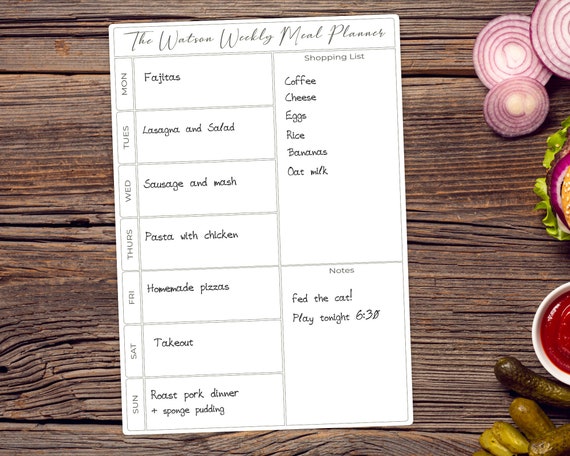 The Watson Weekly Meal Planner
MON
Fajitas
TUES
Lasagna and Salad
WED
Sausage and mash
THURS
Pasta with chicken
FRI
Homemade pizzas
SAT
Takeout
SUN
Roast pork dinner
+ sponge pudding
Shopping List
Coffee
Cheese
Eggs
Rice
Bananas
Oat milk
Notes
fed the cat!
Play tonight 6:30